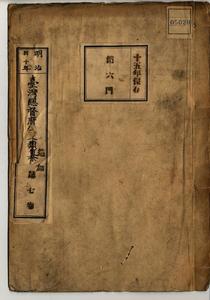 05020
十五年保存
第六門
明治
四十年
臺灣總督府公文類纂
第七卷